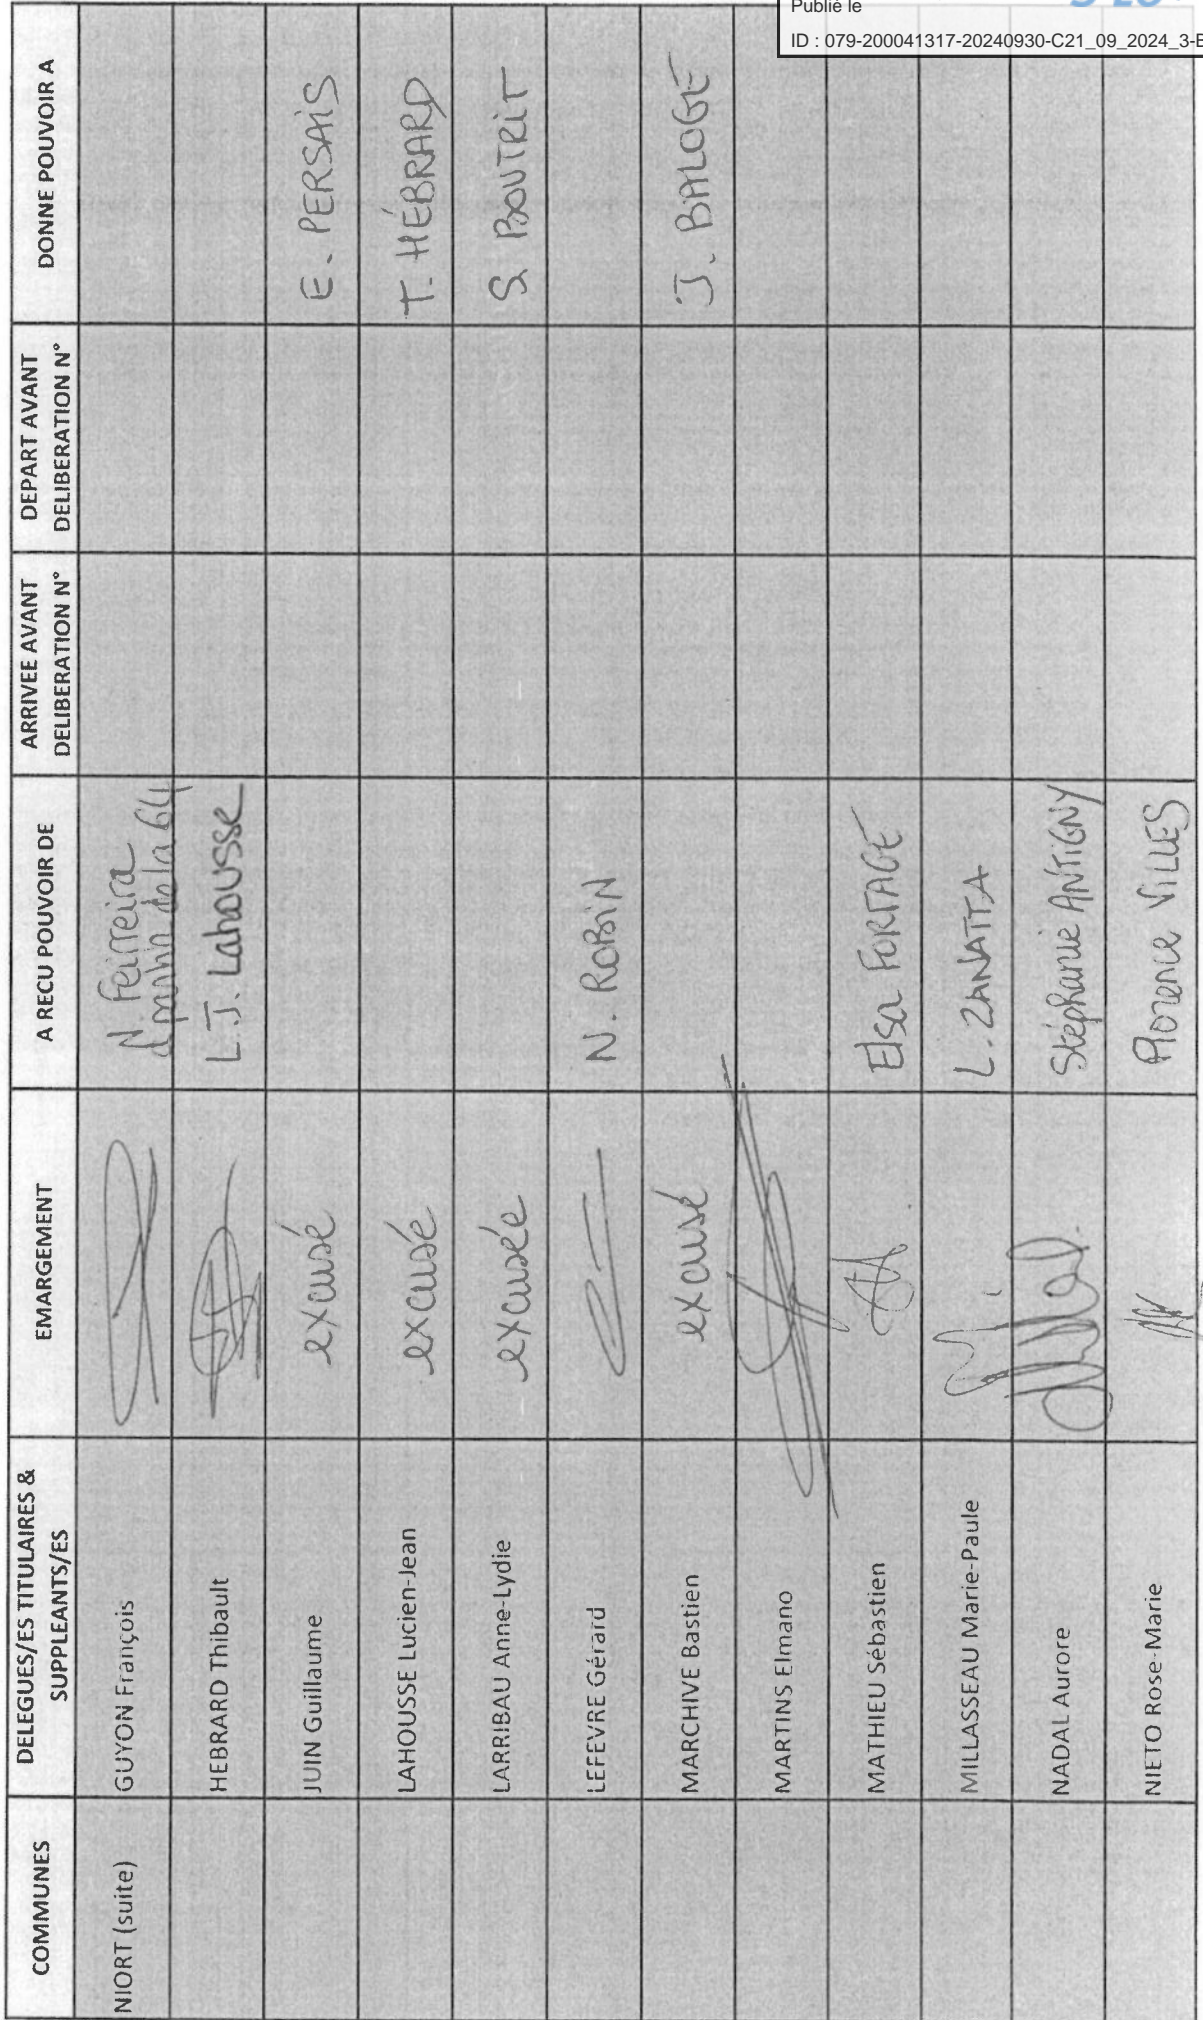 Publié le
ID : 079-200041317-20240930-C21_09_2024_3-
COMMUNES
DELEGUES/ES TITULAIRES &
SUPPLEANTS/ES
EMARGEMENT
A RECU POUVOIR DE
ARRIVEE AVANT
DELIBERATION N°
DEPART AVANT
DELIBERATION N°
DONNE POUVOIR A
NIORT (suite)
GUYON François
N. Ferreira
de la 64
HEBRARD Thibault
L.J. Lahousse
JUIN Guillaume
excusé
E. PERSAIS
LAHOUSSE Lucien-Jean
excusé
T. HÉBRARD
LARRIBAU Anne-Lydie
excusée
S. BOUTRIT
LEFEVRE Gérard
N. ROBIN
MARCHIVE Bastien
excusé
J. BALOGE
MARTINS Elmano
MATHIEU Sébastien
Elsa FORTAGE
MILLASSEAU Marie-Paule
L. ZANATTA
NADAL Aurore
Stéphanie ANTIGNY
NIETO Rose-Marie
Florence VILLES